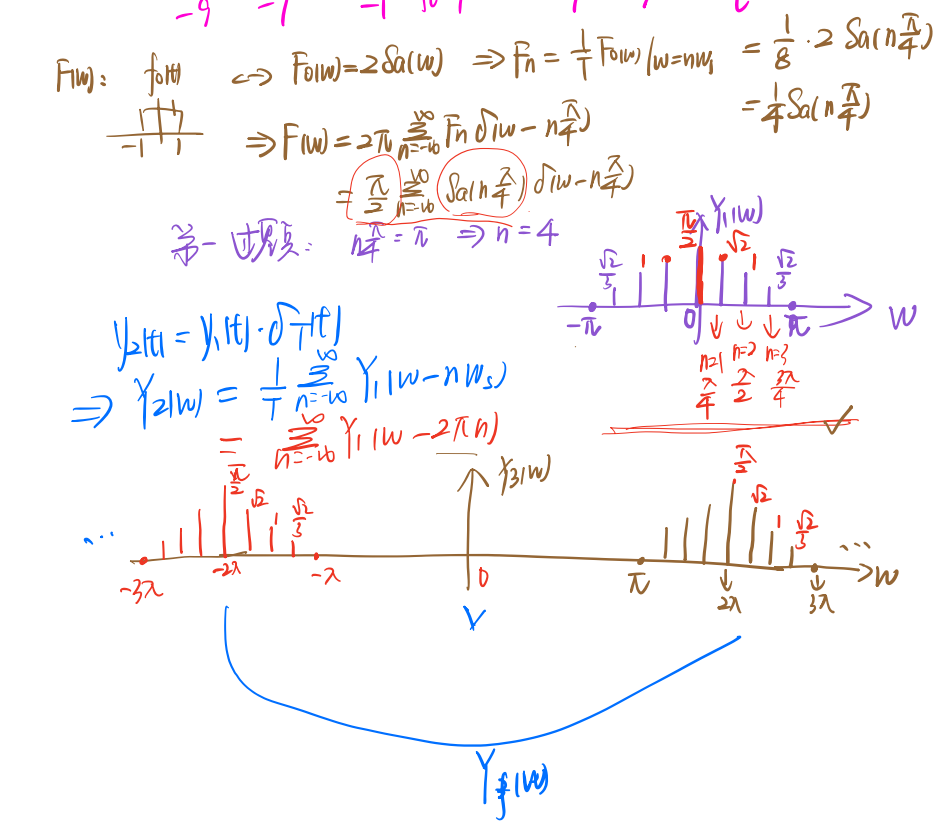 -9 -7 -1
F(w): f₀(t) ↔ F₀(w)=2Sa(w) ⇒ Fn = 1/T F₀(w)|w=nw₁ = 1/8 · 2 Sa(nπ/4)
= 1/4 Sa(nπ/4)
-1 1
⇒ F(w) = 2π ∑_{n=-∞}^{∞} Fn δ(w - nπ/4)
= π/2 ∑_{n=-∞}^{∞} Sa(nπ/4) δ(w - nπ/4)
第一过零点: nπ/4 = π ⇒ n = 4
Y₁(w)
√2/3 1 π/2 √2 1 √2/3
-π 0 π w
n=1 n=2 n=3
π/4 π/2 3π/4
y₂(t) = y₁(t) · δ_T(t)
⇒ Y₂(w) = 1/T ∑_{n=-∞}^{∞} Y₁(w - nws)
= ∑_{n=-∞}^{∞} Y₁(w - 2πn)
Y₃(w)
π/2 √2 1 √2/3 π/2 √2 1 √2/3
... ...
-3π -2π -π 0 π 2π 3π w
Y_f(w)